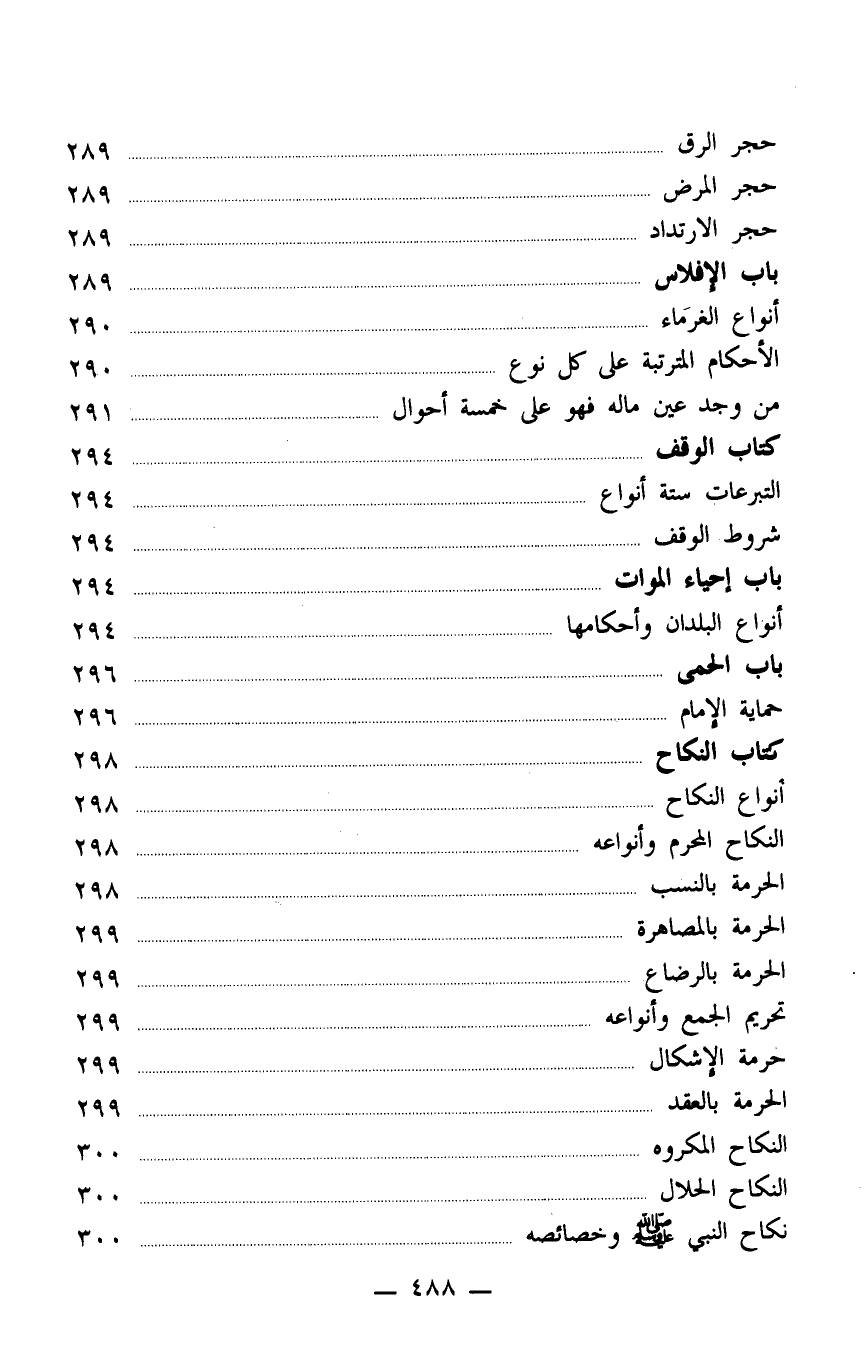 حجر الرق ........ ٢٨٩
حجر المرض ........ ٢٨٩
حجر الارتداد ........ ٢٨٩
باب الإفلاس ........ ٢٨٩
أنواع الغرماء ........ ٢٩٠
الأحكام المترتبة على كل نوع ........ ٢٩٠
من وجد عين ماله فهو على خمسة أحوال ........ ٢٩١
كتاب الوقف ........ ٢٩٤
التبرعات ستة أنواع ........ ٢٩٤
شروط الوقف ........ ٢٩٤
باب إحياء الموات ........ ٢٩٤
أنواع البلدان وأحكامها ........ ٢٩٤
باب الحمى ........ ٢٩٦
حماية الإمام ........ ٢٩٦
كتاب النكاح ........ ٢٩٨
أنواع النكاح ........ ٢٩٨
النكاح المحرم وأنواعه ........ ٢٩٨
الحرمة بالنسب ........ ٢٩٨
الحرمة بالمصاهرة ........ ٢٩٩
الحرمة بالرضاع ........ ٢٩٩
تحريم الجمع وأنواعه ........ ٢٩٩
حرمة الإشكال ........ ٢٩٩
الحرمة بالعقد ........ ٢٩٩
النكاح المكروه ........ ٣٠٠
النكاح الحلال ........ ٣٠٠
نكاح النبي ﷺ وخصائصه ........ ٣٠٠
— ٤٨٨ —